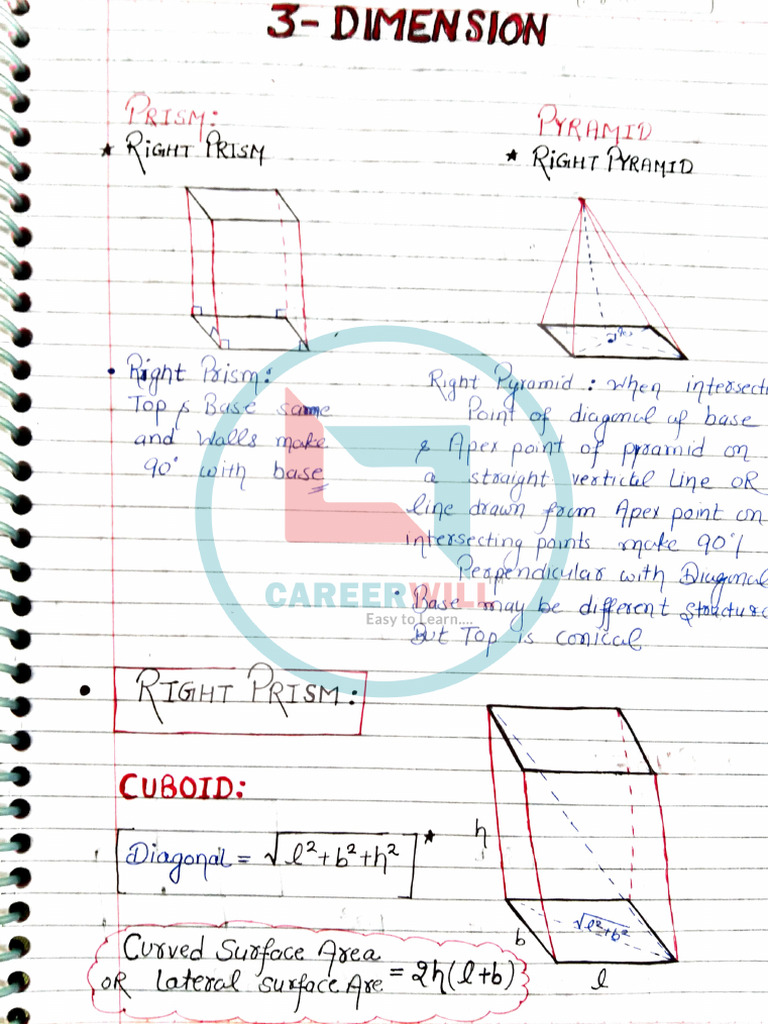 3-DIMENSION
PRISM:
★ RIGHT PRISM
PYRAMID
★ RIGHT PYRAMID
90°
• Right Prism:
Top & Base same
and Walls make
90° with base
Right Pyramid : When intersecti
Point of diagonal of base
& Apex point of pyramid on
a straight vertical Line OR
line drawn from Apex point on
intersecting points make 90°/
Perpendicular with Diagonal
• Base may be different structure
But Top is conical
CAREERWILL
Easy to Learn....
• RIGHT PRISM:
CUBOID:
Diagonal = √l²+b²+h² ★
h
b
√l²+b²
l
Curved Surface Area
OR Lateral Surface Are = 2h(l+b)